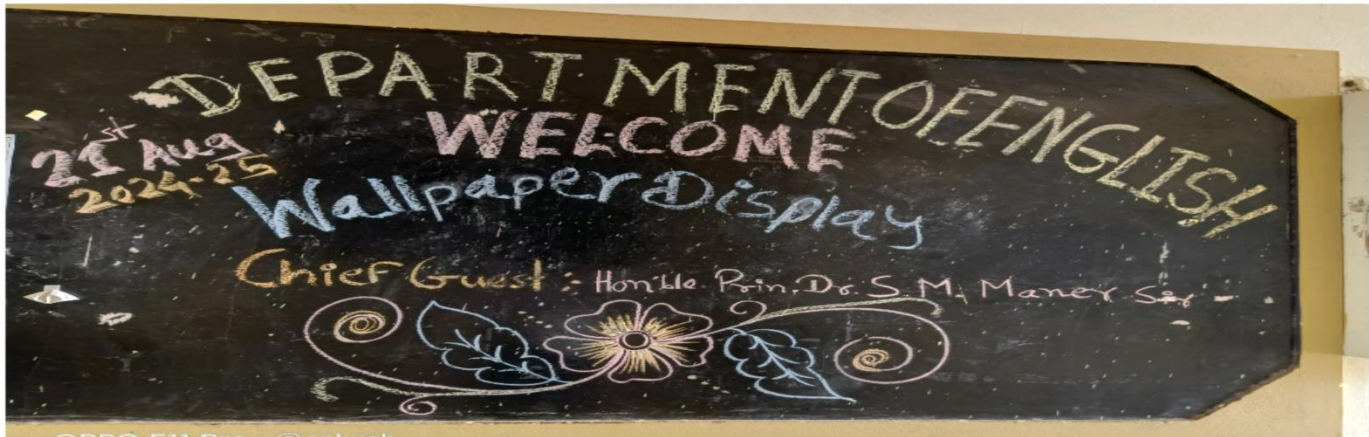 DEPARTMENT OF ENGLISH
WELCOME
21st Aug
2024-25
Wallpaper Display
Chief Guest : Hon'ble Prin. Dr. S. M. Maner Sir